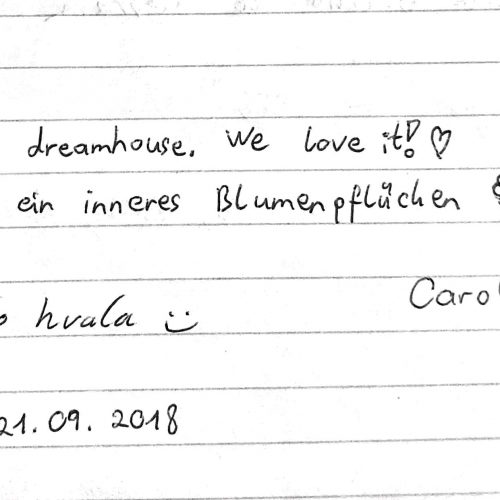 dreamhouse. We love it! ♡
ein inneres Blumenpflücken
hvala :)
21.09.2018